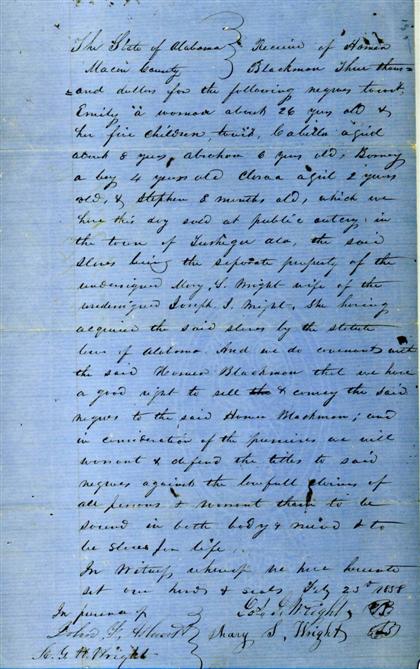 The State of Alabama } Receive of Homer
Macon County } Blackman Three thous=
=and dollars for the following negroes towit,
Emily a woman about 26 yers old &
her five children towit, a girl
about 8 yers, abraham 6 yers old,
a boy 4 years old Cloraa a girl 2 years
old, & Stephen 8 months old, which we
have this day sold at public outcry, in
the town of Tuskegee ala, the said
slaves being the seperate property of the
undersigned Mary S. Wright wife of the
undersigned Joseph G. Wright, She having
acquired the said slaves by the statute
laws of Alabama. And we do covenant with
the said Homer Blackman that we have
a good right to sell & convey the said
negroes to the said Homer Blackman; and
in consideration of the premises we will
warrant & defend the titles to said
negroes against the lawfull claims of
all persons & warrant them to be
sound in both body & mind & to
be slaves for life,
In Witness whereof we have hereunto
set our hands & seals Feby 23d 1858
In presence of } Jos G. Wright
Mary S, Wright
H. Wright